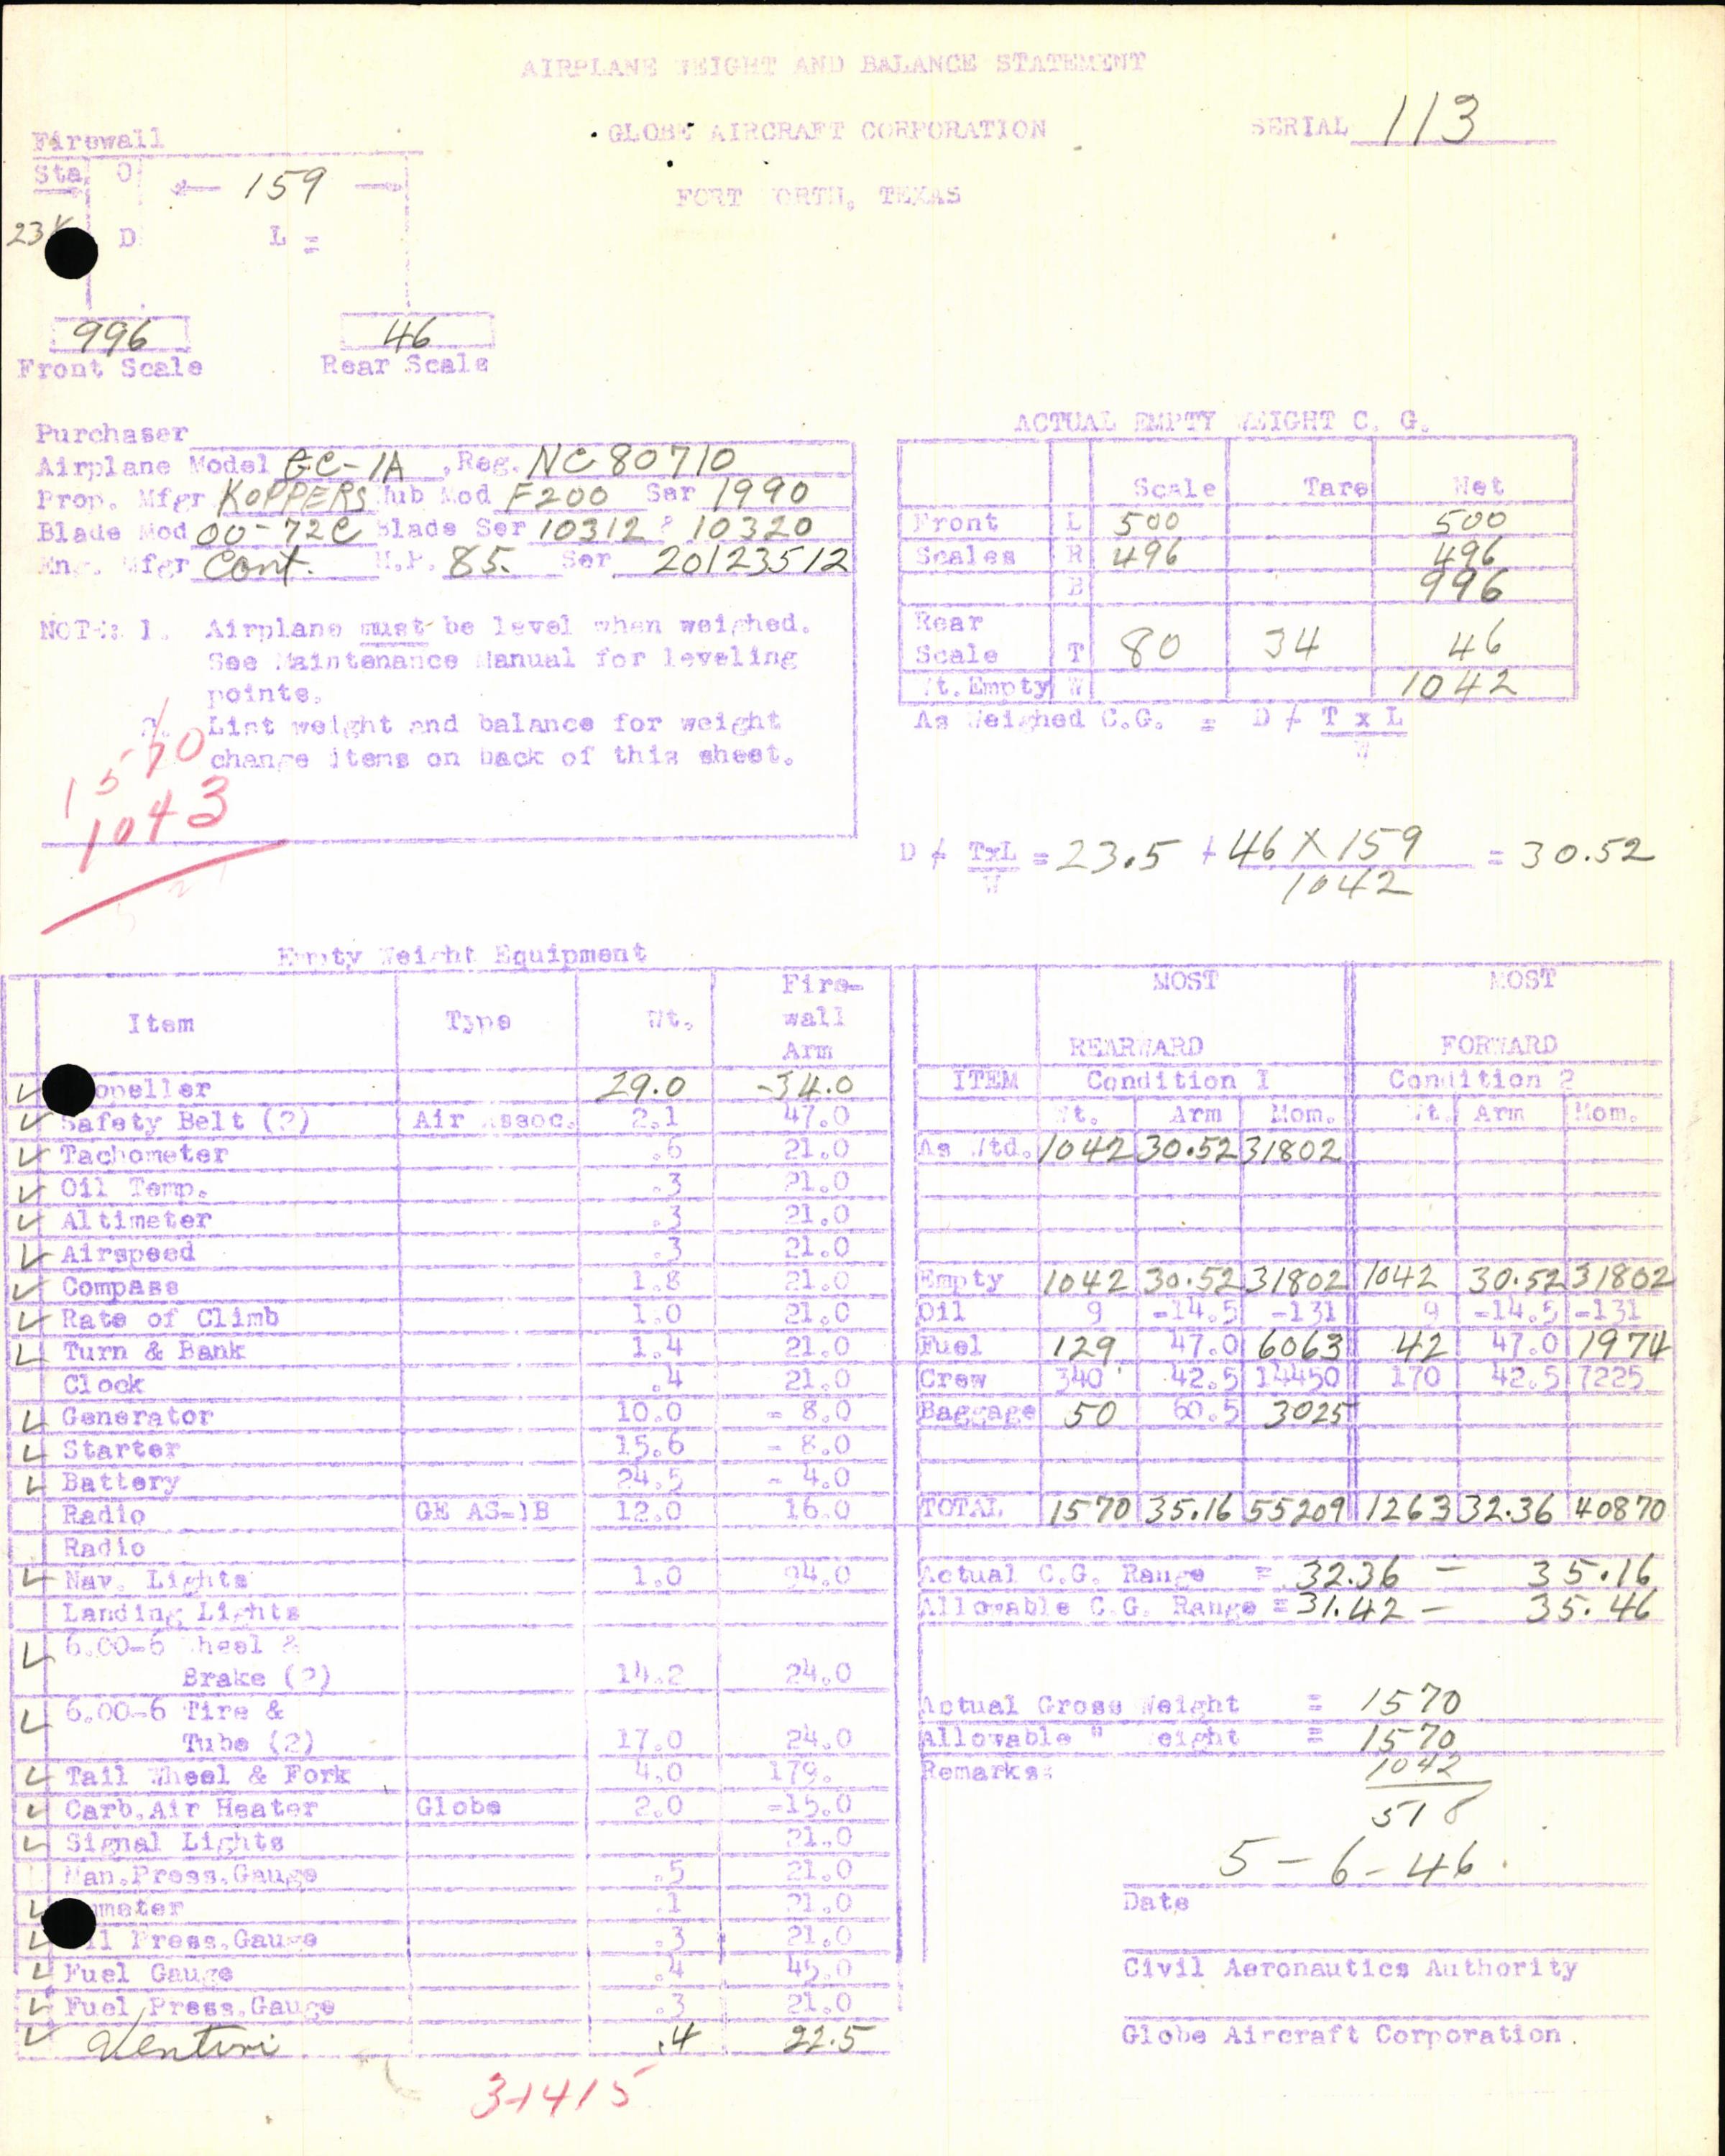 AIRPLANE WEIGHT AND BALANCE STATEMENT
GLOBE AIRCRAFT CORPORATION
SERIAL 113
FORT WORTH, TEXAS
Firewall
Sta. 0
159
23½
D L =
996 46
Front Scale Rear Scale
Purchaser
Airplane Model GC-1A, Reg. NC 80710
Prop. Mfgr KOPPERS Hub Mod F200 Ser 1990
Blade Mod 00-72C Blade Ser 10312 & 10320
Eng. Mfgr Cont. H.P. 85. Ser 20123512
NOTE: 1. Airplane must be level when weighed.
See Maintenance Manual for leveling
points.
2. List weight and balance for weight
change items on back of this sheet.
1570
1043
ACTUAL EMPTY WEIGHT C. G.
Scale Tare Net
Front L 500 500
Scales R 496 496
B 996
Rear
Scale T 80 34 46
Wt. Empty W 1042
As Weighed C.G. = D + T x L
W
D + TxL = 23.5 + 46 X 159 = 30.52
W 1042
Empty Weight Equipment
Item Type Wt. Fire-
wall
Arm
Propeller 29.0 -34.0
Safety Belt (2) Air Assoc. 2.1 47.0
Tachometer .6 21.0
Oil Temp. .3 21.0
Altimeter .3 21.0
Airspeed .3 21.0
Compass 1.8 21.0
Rate of Climb 1.0 21.0
Turn & Bank 1.4 21.0
Clock .4 21.0
Generator 10.0 - 8.0
Starter 15.6 - 8.0
Battery 24.5 - 4.0
Radio GE AS-1B 12.0 16.0
Radio
Nav. Lights 1.0 94.0
Landing Lights
6.00-6 Wheel &
Brake (2) 14.2 24.0
6.00-6 Tire &
Tube (2) 17.0 24.0
Tail Wheel & Fork 4.0 179.
Carb.Air Heater Globe 2.0 -15.0
Signal Lights 21.0
Man.Press.Gauge .5 21.0
Ammeter .1 21.0
Oil Press.Gauge .3 21.0
Fuel Gauge .4 45.0
Fuel Press.Gauge .3 21.0
Venturi .4 22.5
31415
MOST MOST
REARWARD FORWARD
ITEM Condition 1 Condition 2
Wt. Arm Mom. Wt. Arm Mom.
As Wtd. 1042 30.52 31802
Empty 1042 30.52 31802 1042 30.52 31802
Oil 9 -14.5 -131 9 -14.5 -131
Fuel 129 47.0 6063 42 47.0 1974
Crew 340 42.5 14450 170 42.5 7225
Baggage 50 60.5 3025
TOTAL 1570 35.16 55209 1263 32.36 40870
Actual C.G. Range = 32.36 - 35.16
Allowable C.G. Range = 31.42 - 35.46
Actual Gross Weight = 1570
Allowable " Weight = 1570
Remarks: 1042
518
5-6-46.
Date
Civil Aeronautics Authority
Globe Aircraft Corporation.